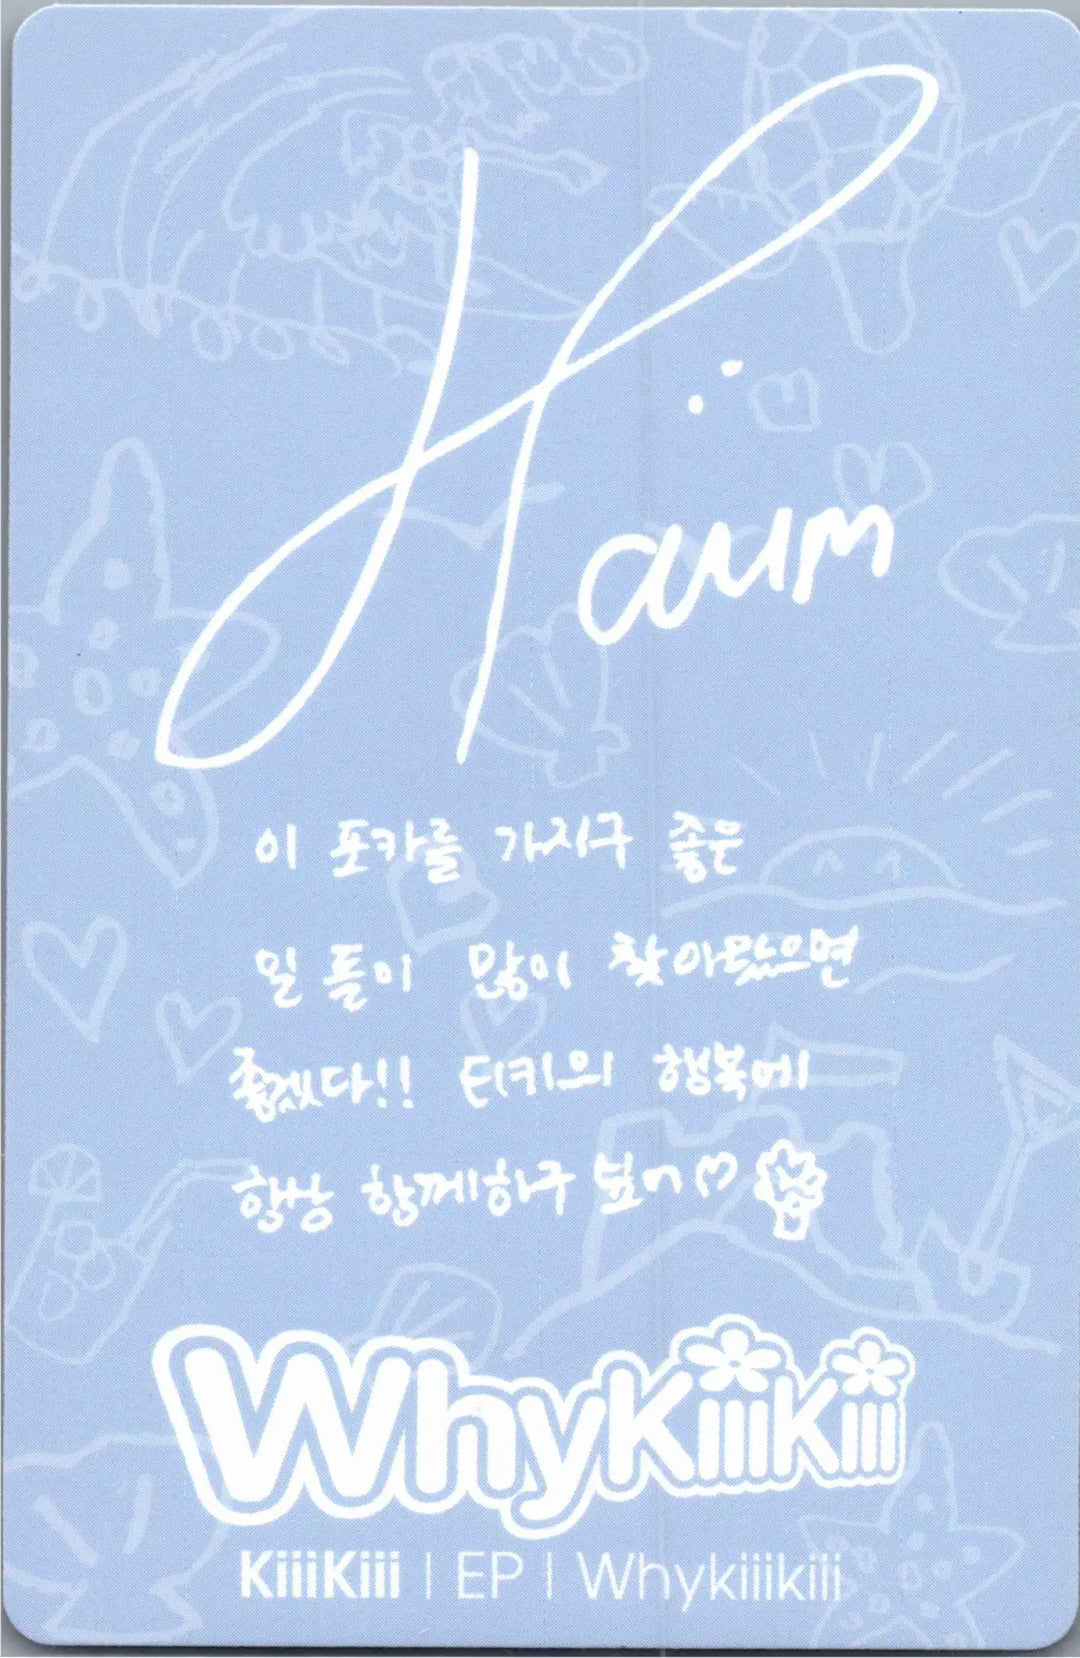 Haum
이 포카를 가지구 좋은
일 들이 많이 찾아왔으면
좋겠다!! 티키의 행복에
항상 함께하구 싶어♡
WhyKiiiKiii
KiiiKiii | EP | Whykiiikiii